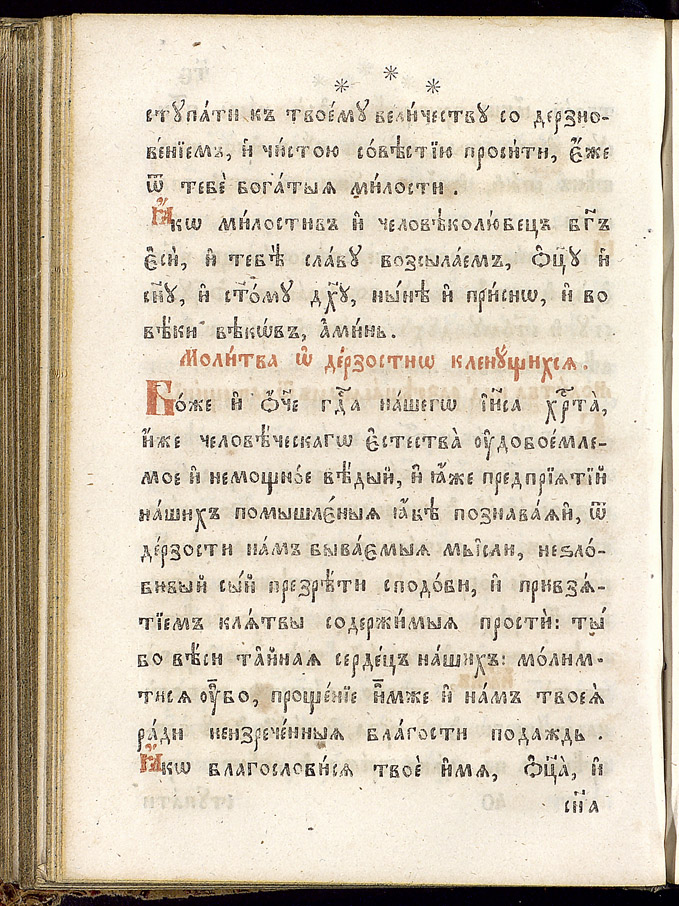 * * *
стꙋпа́ти къ твоемꙋ̀ вели́честву со дерзно-
ве́нїемъ, и҆ чи́стою со́вѣстїю проси́ти, є҆́же
ѿ тебѐ бога́тыѧ ми́лости .
Ꙗ҆́кѡ ми́лостивъ и҆ человѣ̀колю́бецъ бг҃ъ
є҆сѝ, и҆ тебѣ̀ сла́вꙋ возсыла́емъ, ѻ҆ц҃ꙋ̀ и҆
сн҃ꙋ, и҆ ст҃о́мꙋ дх҃ꙋ, ны́нѣ и҆ при́снѡ, и҆ во
вѣ́ки вѣкѡ́въ, а҆ми́нь.
Моли́тва ѡ҆ де́рзостнѡ клену́щихсѧ .
Бо́же и҆ ѻ҆́ч҃е гдⷭ҇а на́шегѡ і҆и҃са хрⷭ҇та̀,
и҆́же человѣ́ческагѡ є҆стества̀ оу҆добоє́мле-
мое и҆ немощно́е вѣ́дый, и҆ ꙗ҆̀же предпрїѧтїй
на́шихъ помышлє́нїѧ ꙗ҆́вѣ познава́ѧй, ѿ
де́рзости на́мъ быва́ємыѧ мы́сли, неѕло́-
бивый сы́й презрѣ́ти сподо́би, и҆ привзѧ́-
тїемъ клѧ́твы содержи́мыѧ простѝ: ты́
бо вѣ́си та̑йнаѧ серде́цъ на́шихъ: мо́лим-
тисѧ оу҆̀бо, проще́нїе и҆̀мже и҆ на́мъ твоеѧ̀
ра́ди неизрече́нныѧ бла́гости пода́ждь .
Ꙗ҆́кѡ благослови́сѧ твоѐ и҆́мѧ, ѻ҆ц҃а̀, и҆
сн҃а